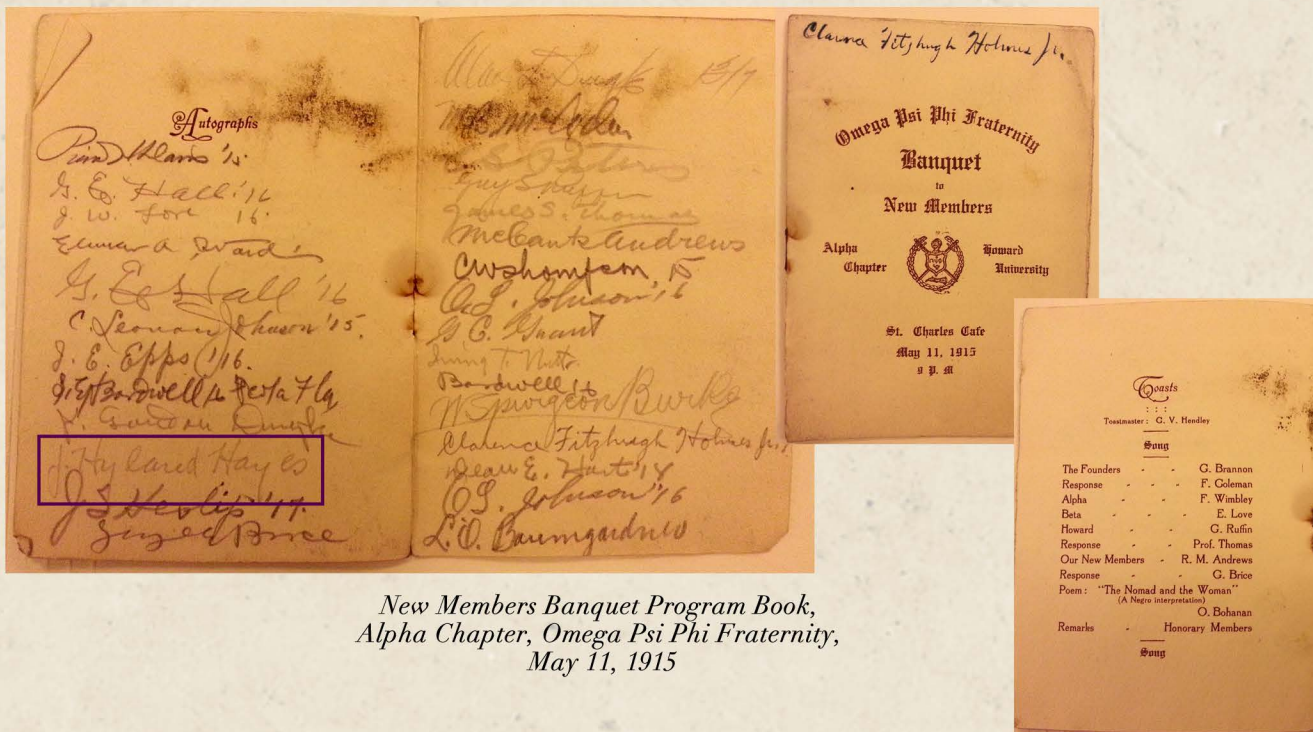 Autographs
G. E. Hall '16
J. W. Love 16.
G. E. Hall '16
C. Leonard Johnson '15.
J. E. Epps '16.
Bardwell Fla
J. Hyland Hayes
J S Heslip '17.
Brice
James S. Thomas
McCants Andrews
CW Thompson 15
O. L. Johnson '16
G C. Grant
Irving T. Nutt
Bardwell
W Spurgeon Burke
Clarence Fitzhugh Holmes Jr.
Dean E. Hart '14
O S. Johnson '16
L. O. Baumgardner
Clarence Fitzhugh Holmes Jr.
Omega Psi Phi Fraternity
Banquet
to
New Members
Alpha
Chapter
Howard
University
St. Charles Cafe
May 11, 1915
9 P. M
Toasts
: : :
Toastmaster: G. V. Hendley
Song
The Founders - - G. Brannon
Response - - - F. Coleman
Alpha - - F. Wimbley
Beta - - - E. Love
Howard - - G. Ruffin
Response - - Prof. Thomas
Our New Members - R. M. Andrews
Response - - G. Brice
Poem: "The Nomad and the Woman"
(A Negro interpretation)
O. Bohanan
Remarks - Honorary Members
Song
New Members Banquet Program Book,
Alpha Chapter, Omega Psi Phi Fraternity,
May 11, 1915